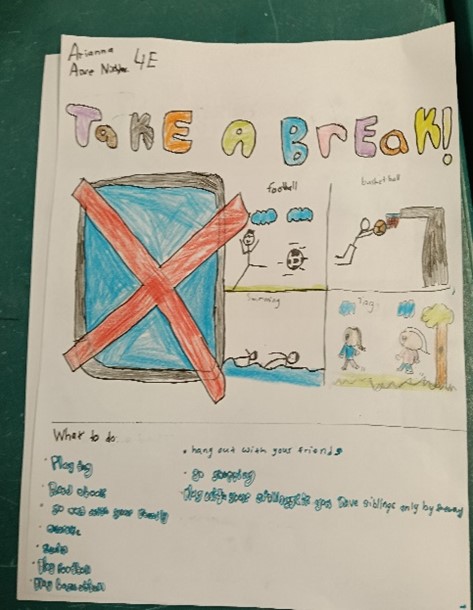 Arianna
4E
TaKE A BrEaK!
football
basketball
swimming
Tag
What to do:
• Play tag
• Read a book
• go out with your family
• Play football
• Play basketball
• hang out with your friends
• go shopping
• Play with your siblings if you have siblings only